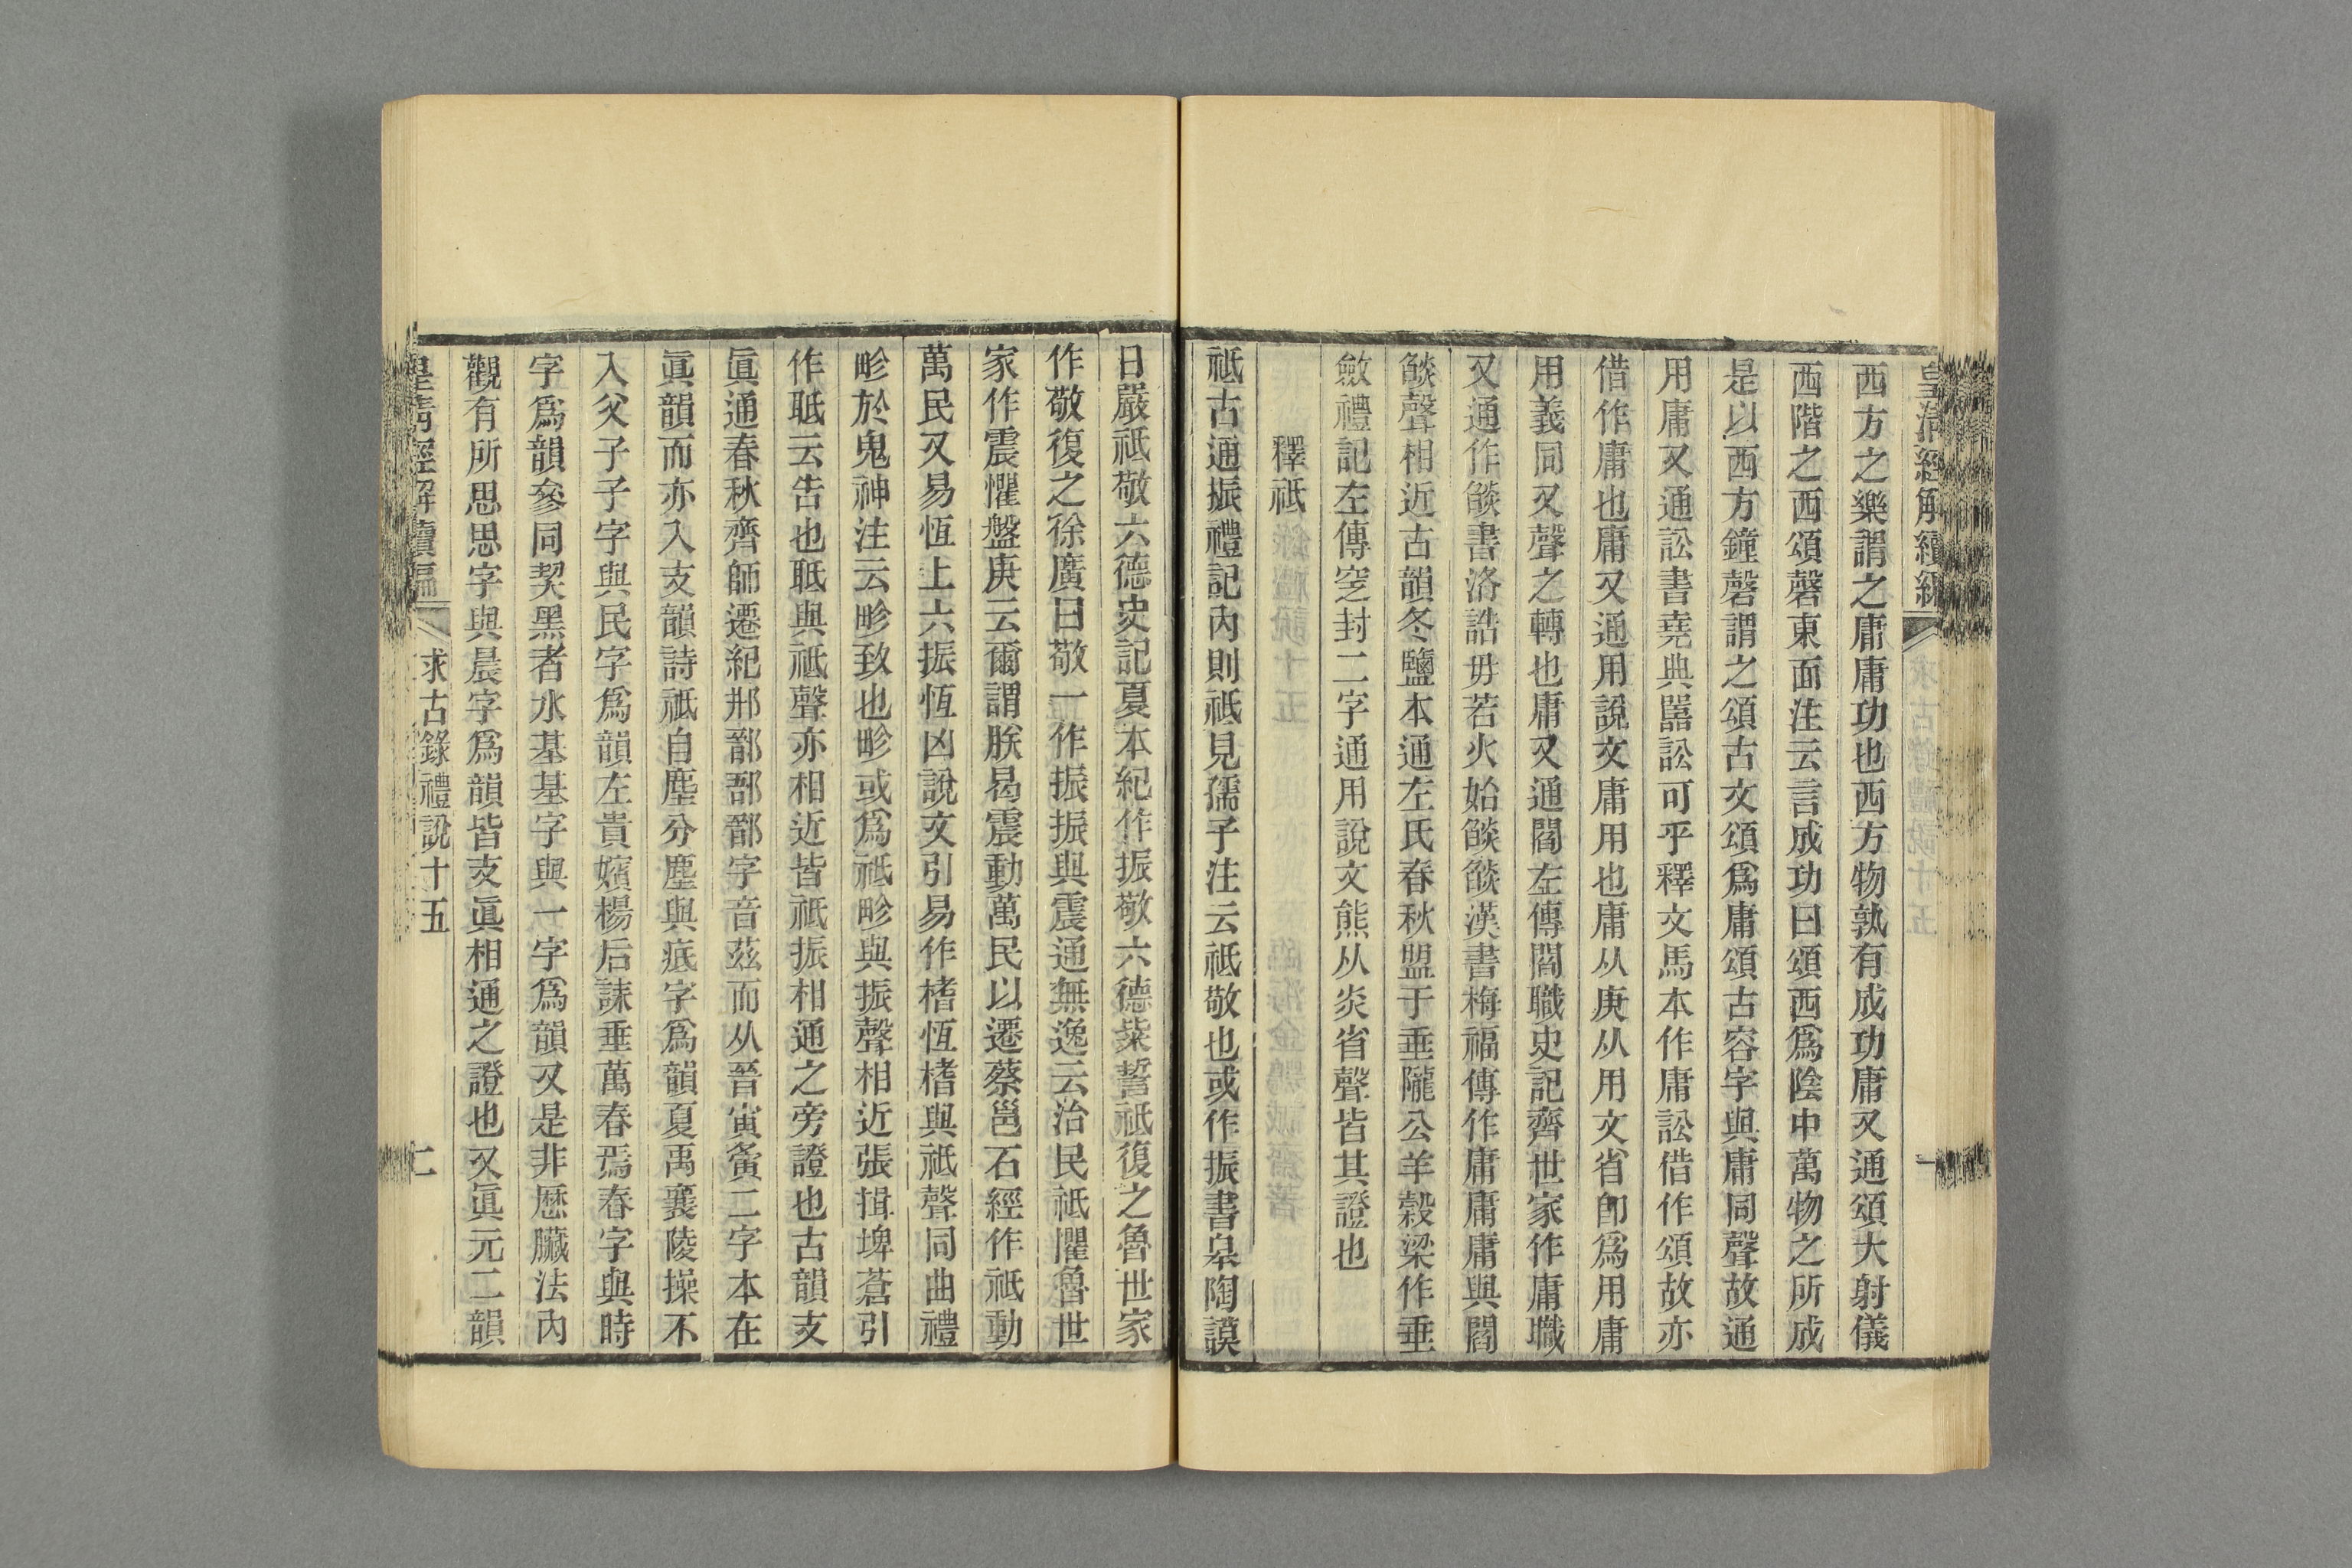 皇清經解續編
西方之樂謂之庸庸功也西方物孰有成功庸又通頌大射儀
西階之西頌磬東面注云言成功曰頌西爲陰中萬物之所成
是以西方鐘磬謂之頌古文頌爲庸頌古容字與庸同聲故通
用庸又通訟書堯典嚚訟可乎釋文馬本作庸訟借作頌故亦
借作庸也庸又通用說文庸用也庸从庚从用文省卽爲用庸
用義同又聲之轉也庸又通閻左傳閻職史記齊世家作庸職
又通作燄書洛誥毋若火始燄燄漢書梅福傳作庸庸庸與閻
燄聲相近古韻冬鹽本通左氏春秋盟于垂隴公羊穀梁作垂
斂禮記左傳窆封二字通用說文熊从炎省聲皆其證也
釋祗
祗古通振禮記內則祗見孺子注云祗敬也或作振書皋陶謨
日嚴祗敬六德史記夏本紀作振敬六德粊誓祗復之魯世家
作敬復之徐廣曰敬一作振振與震通無逸云治民祗懼魯世
家作震懼盤庚云爾謂朕曷震動萬民以遷蔡邕石經作祗動
萬民又易恆上六振恆凶說文引易作榰恆榰與祗聲同曲禮
畛於鬼神注云畛致也畛或爲祗畛與振聲相近張揖埤蒼引
作聄云告也聄與祗聲亦相近皆祗振相通之旁證也古韻支
眞通春秋齊師遷紀郱鄑郚鄑字音茲而从晉寅夤二字本在
眞韻而亦入支韻詩祗自塵分塵與疷字爲韻夏禹襄陵操不
入父子子字與民字爲韻左貴嬪楊后誄垂萬春焉春字與時
字爲韻參同契黑者水基基字與一字爲韻又是非歷臟法內
觀有所思思字與晨字爲韻皆支眞相通之證也又眞元二韻
皇清經解續編 求古錄禮說十五